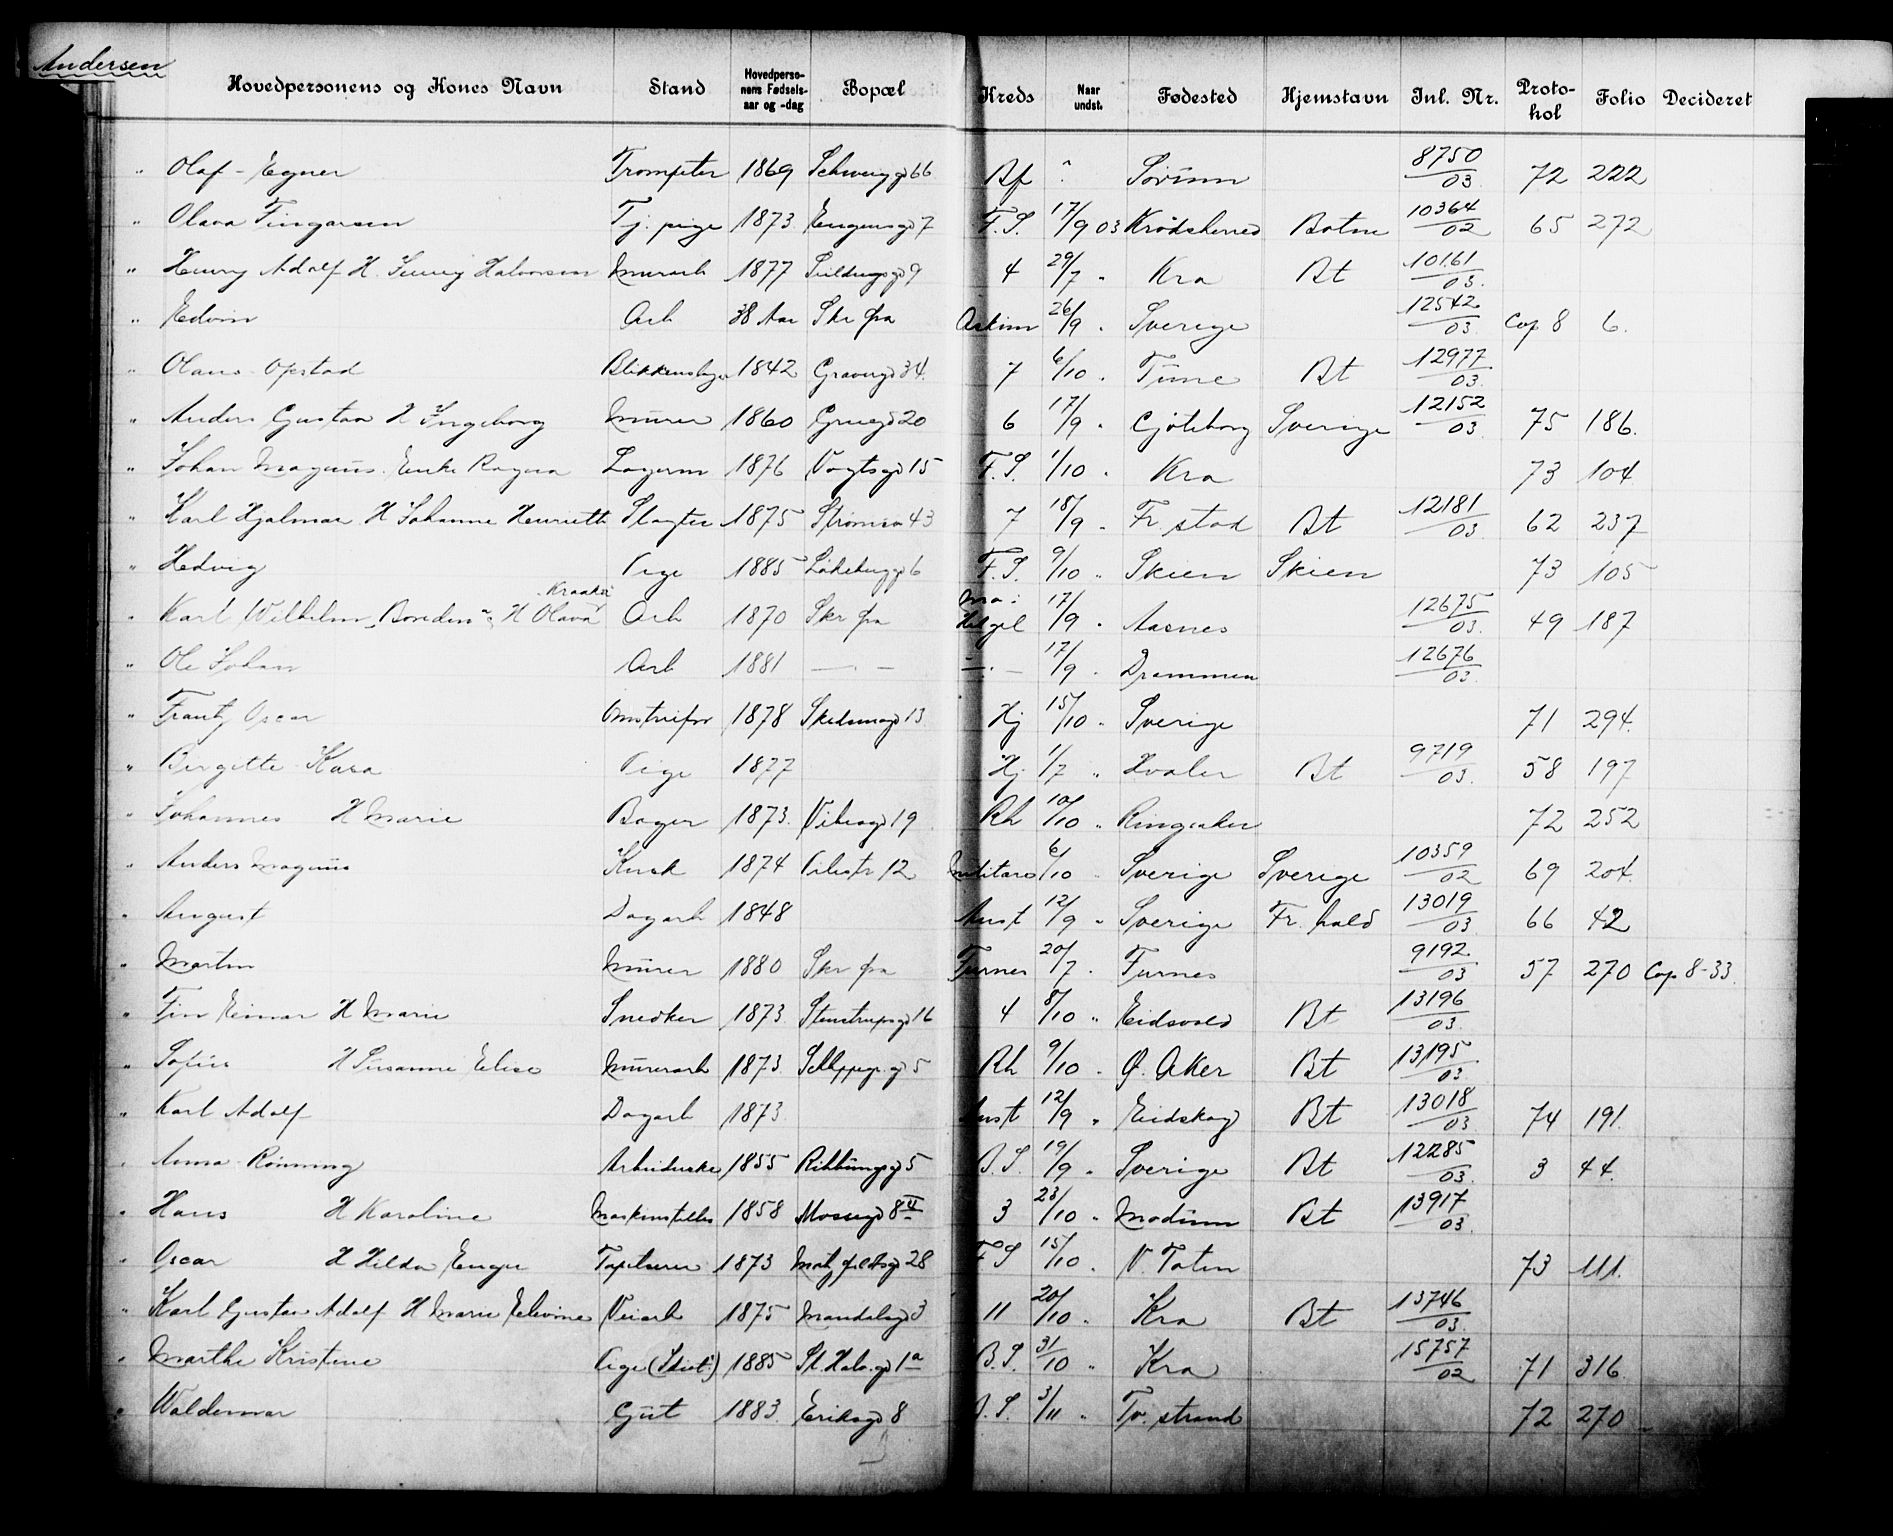 Andersen
Hovedpersonens og Kones Navn Stand Hovedperso-nens Fødsels-aar og -dag Bopæl Kreds Naar undst. Fødested Hjemstavn Inl. Nr. Proto-kol Folio Decideret
" Olaf - Egner Trompeter 1869 Schweigsgd 66 Af " Sørum 8750/03 72 222
" Olava Fingarsen Tj. pige 1873 Enggd 7 F.S. 17/9 03 Krødsherred Botne 10364/02 65 272
" Henry Adolf H Jenny Halvorsen Murarb 1877 9 4 29/7 " Kra Bt 10161/03
" Edvin Arb 38 Aar Skr fra Askim 26/9 " Sverige 12542/03 Cop 8 6.
" Olaus Opstad Blikkenslager 1842 Gravergd 34 7 6/10 " Tune Bt 12977/03
" Anders Gustav H Ingeborg Murer 1860 Gruegd 20 6 17/9 " Gjøteborg Sverige 12152/03 75 186.
" Johan Magnus. Enke Ragna Lagerm 1876 Vogtsgd 15 F.S. 1/10 " Kra 73 104
" Karl Hjalmar H Johanne Henriette Slagter 1875 Strømsv 43 7 18/9 " Fr. stad Bt 12181/03 62 237
" Hedvig Pige 1885 Løkebergg 6 F.S. 9/10 " Skien Skien 73 105
" Karl Wilhelm H Olava Arb 1870 Skr fra 17/9 " Aasnes 12675/03 49 187
" Ole Johan Arb 1881 — " — — " — 17/9 " Drammen 12676/03
" Frantz Oscar Omstreifer 1878 Skedsmogd 13 Hj 15/10 " Sverige 71 294.
" Birgitte - Kasa Pige 1877 Hj 1/7 " Hvaler Bt 9719/03 58 197
" Johannes H Marie Bager 1873 Vibesgd 19 Rh 10/10 " Ringsaker 72 252
" Anders Magnus Kusk 1874 Pilestr 12 Militære 6/10 " Sverige Sverige 10359/02 69 204.
" August Dagarb 1848 Aust 12/9 " Sverige Fr. hald 13019/03 66 42
" Martin Murer 1880 Skr fra Furnes 20/7 " Furnes 9192/03 57 270 Cop 8-33
" Fin Einar H Marie Snedker 1873 Stenstrupsgd 16 4 8/10 " Eidsvold Bt 13196/03
" Sofus H Susanne Elise Murerarb 1873 Schleppegr. gd 5 Rh 9/10 " Ø. Aker Bt 13195/03
" Karl Adolf Dagarb 1873 Aust 12/9 " Eidskog Bt 13018/03 74 191.
" Anna - Rønning Arbeiderske 1855 Ribbungsgd 5 B.S. 19/9 " Sverige Bt 12285/03 3 44.
" Hans H Karoline Maskinsteller 1858 Mossegd 8 II 3 23/10 " Modum Bt 13917/03
" Oscar H Hilda Enger Tapetserer 1873 28 F S 15/10 " V. Toten 73 111.
" Karl Gustav Adolf H Marie Elevine Veiarb 1875 Mandalsgd 3 11 20/10 " Kra Bt 13746/03
" Marthe Kristine Pige (Idiot) 1885 St. Halv. gd 1a B.S. 31/10 " Kra 15757/02 71 316.
" Waldemar Gut 1883 Eriksgd 8 B.S. 3/11 " Tv. strand 72 270